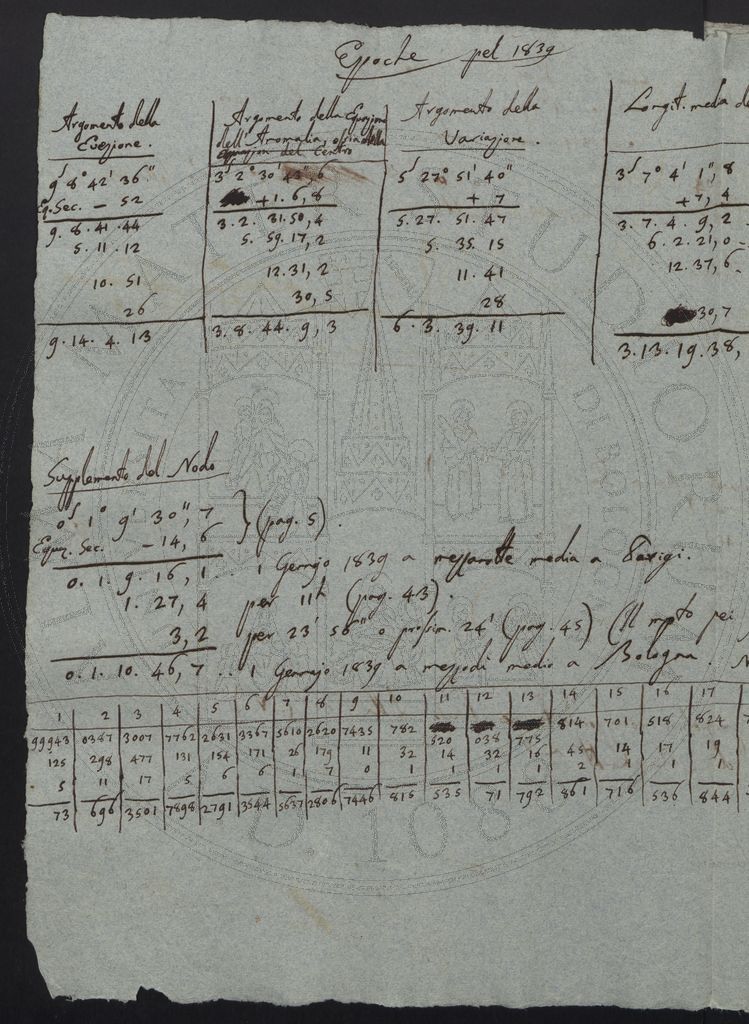 Epoche pel 1839
Argomento della
Evezione.
9ˢ 8° 42' 36"
Eq. Sec. - 52
9. 8. 41. 44
5. 11. 12
10. 51
26
9. 14. 4. 13
Argomento della Equazione
dell'Anomalia, ossia della
Equazion del Centro
3ˢ 2° 30' 43", 6
+ 1. 6, 8
3. 2. 31. 50, 4
5. 59. 17, 2
12. 31, 2
30, 5
3. 8. 44. 9, 3
Argomento della
Variazione.
5ˢ 27° 51' 40"
+ 7
5. 27. 51. 47
5. 35. 15
11. 41
28
6. 3. 39. 11
Longit. media de
3ˢ 7° 4' 1", 8
+ 7, 4
3. 7. 4. 9, 2 -
6. 2. 21, 0 -
12. 37, 6 -
30, 7
3. 13. 19. 38,
Supplemento del Nodo
0ˢ 1° 9' 30", 7 } (pag. 5).
Equaz. Sec. - 14, 6
0. 1. 9. 16, 1 .. 1 Gennajo 1839 a mezzanotte media a Parigi.
1. 27, 4 per 11ʰ (pag. 43).
3, 2 per 23' 56" o prossim. 24' (pag. 45) (Il mpto pei
0. 1. 10. 46, 7 .. 1 Gennajo 1839 a mezzodì medio a Bologna.
1 2 3 4 5 6 7 8 9 10 11 12 13 14 15 16 17
99943 0387 3007 7762 2631 3367 5610 2620 7435 782 520 038 775 814 701 518 824
125 298 477 131 154 171 26 179 11 32 14 32 16 45 14 17 19
5 11 17 5 6 6 1 7 0 1 1 1 1 2 1 1 1
73 696 3501 7898 2791 3544 5637 2806 7446 815 535 71 792 861 716 536 844